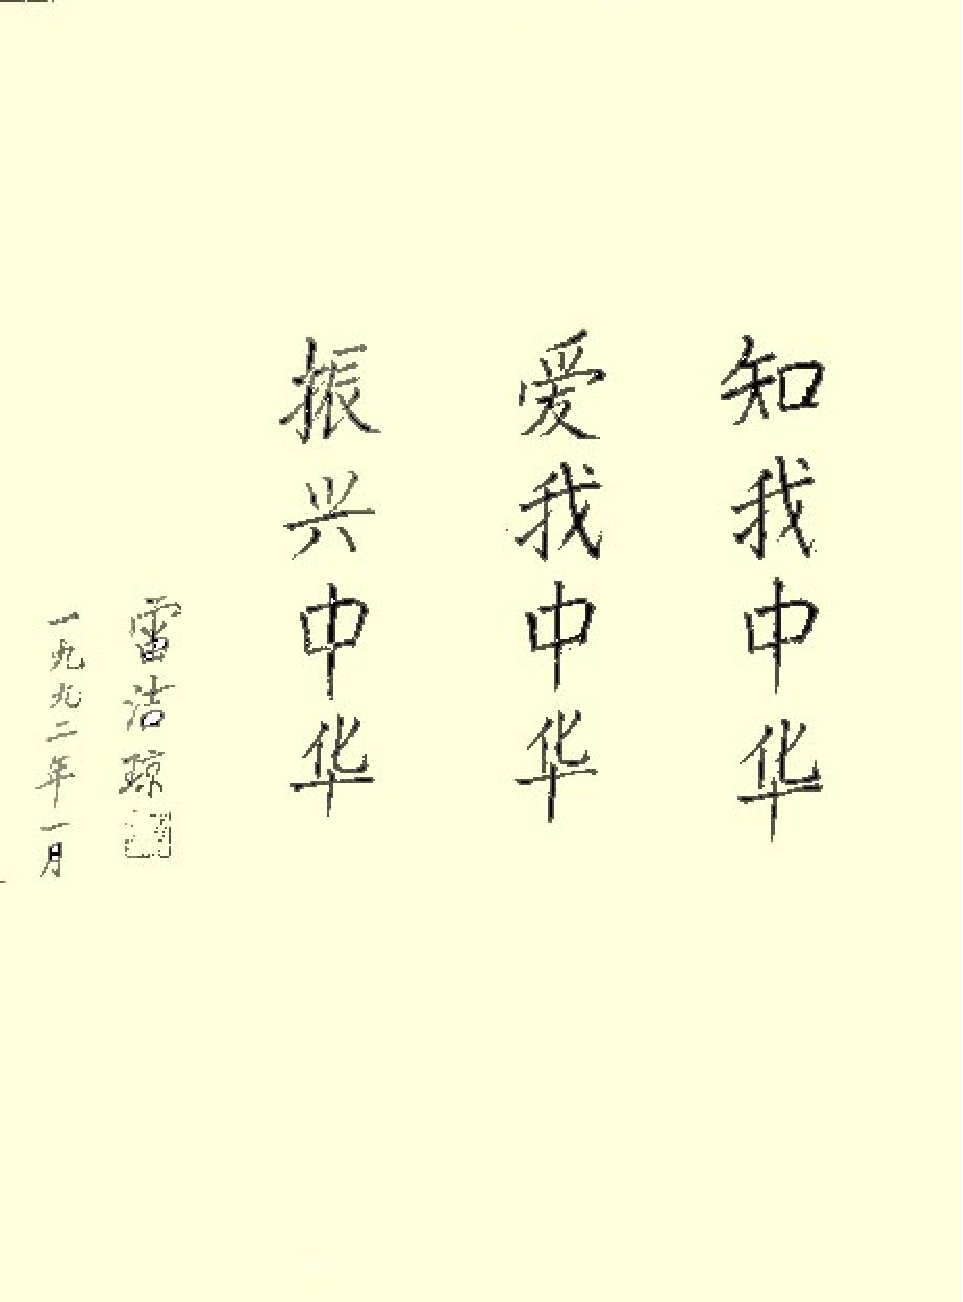 知我中华
爱我中华
振兴中华
雷洁琼
一九九二年一月